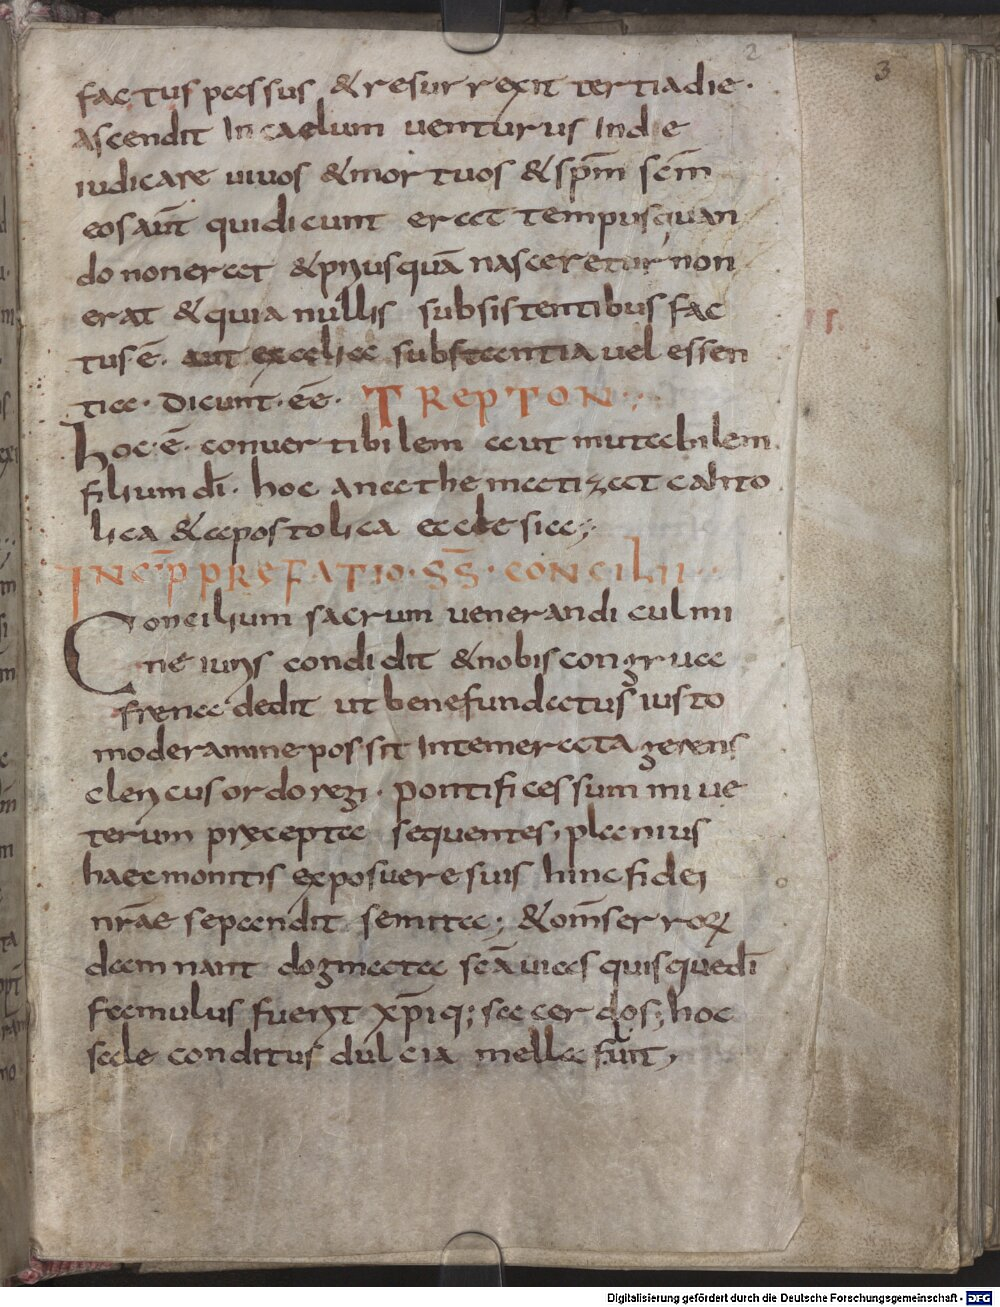 2
3
factus passus & resurrexit tertia die.
ascendit in caelum uenturus inde
iudicare uiuos & mortuos & spm scm
eos aut qui dicunt erat tempus quan
do non erat & priusquā nasceretur non
erat & quia nullis subsistentibus fac
tus ē. aut ex alia substantia uel essen
tia. dicunt. eē. TREPTON
hoc. ē. conuertibilem aut mutabilem
filium di. hoc anathematizat catho
lica & apostolica ecclesia;
INĒ PREFATIO. SS. CONCILII
Concilium sacrum uenerandi culmi
ne iuris condidit & nobis congrua
frena dedit ut bene fundatus iusto
moderamine possit intemerata gerens
clericus ordo regi. pontifices summi ue
terum praecepta sequentes, plenius
haec monitis exposuere suis hinc fidei
nrae se pandit semita; & oms errorꝝ
damnant dogmata scā uices quisque dī
famulus fuerit xpiq; sacerdos; hoc
sale conditus dulcia mella fluit,
Digitalisierung gefördert durch die Deutsche Forschungsgemeinschaft - DFG